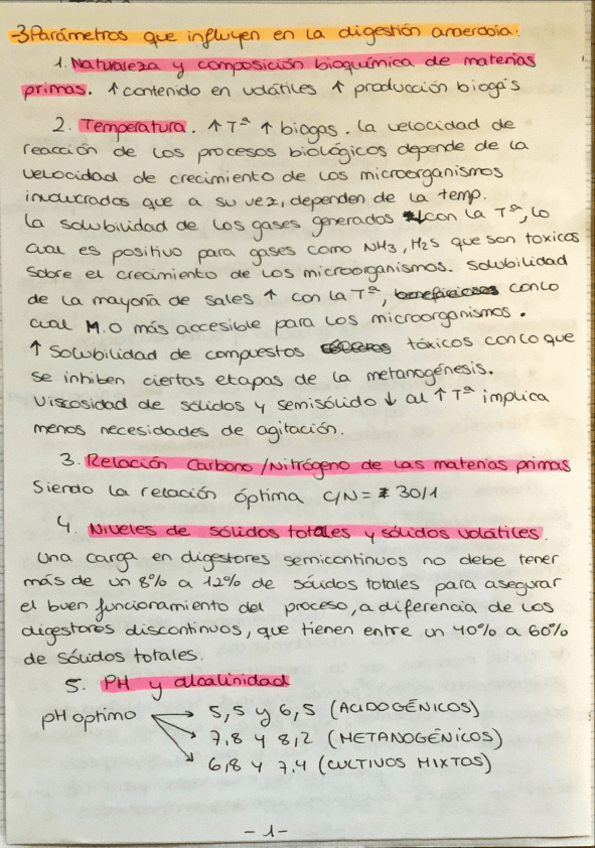 →3 Parámetros que influyen en la digestión anaerobia:
1. Naturaleza y composición bioquímica de materias
primas. ↑ contenido en volátiles ↑ producción biogás
2. Temperatura. ↑ Tª ↑ biogas. La velocidad de
reacción de los procesos biológicos depende de la
velocidad de crecimiento de los microorganismos
involucrados que a su vez, dependen de la temp.
La solubilidad de los gases generados ↓ con la Tª, lo
cual es positivo para gases como NH3, H2S que son toxicos
sobre el crecimiento de los microorganismos. Solubilidad
de la mayoría de sales ↑ con la Tª, con lo
cual M.O más accesible para los microorganismos.
↑ Solubilidad de compuestos tóxicos con lo que
se inhiben ciertas etapas de la metanogénesis.
Viscosidad de sólidos y semisólido ↓ al ↑ Tª implica
menos necesidades de agitación.
3. Relación Carbono/Nitrógeno de las materias primas
Siendo la relación óptima C/N = 30/1
4. Niveles de sólidos totales y sólidos volátiles.
Una carga en digestores semicontinuos no debe tener
más de un 8% a 12% de sólidos totales para asegurar
el buen funcionamiento del proceso, a diferencia de los
digestores discontinuos, que tienen entre un 40% a 60%
de sólidos totales.
5. PH y alcalinidad
pH optimo → 5,5 y 6,5 (ACIDOGÉNICOS)
→ 7,8 y 8,2 (METANOGÉNICOS)
→ 6,8 y 7,4 (CULTIVOS MIXTOS)
-1-